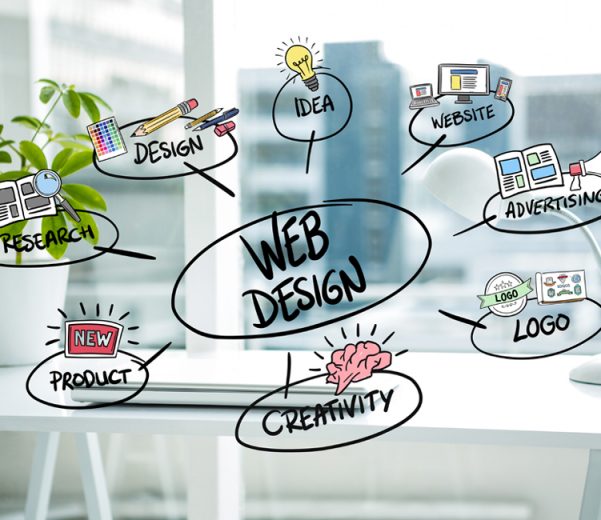 IDEA
WEBSITE
DESIGN
ADVERTISING
RESEARCH
WEB
DESIGN
LOGO
LOGO
NEW
PRODUCT
CREATIVITY